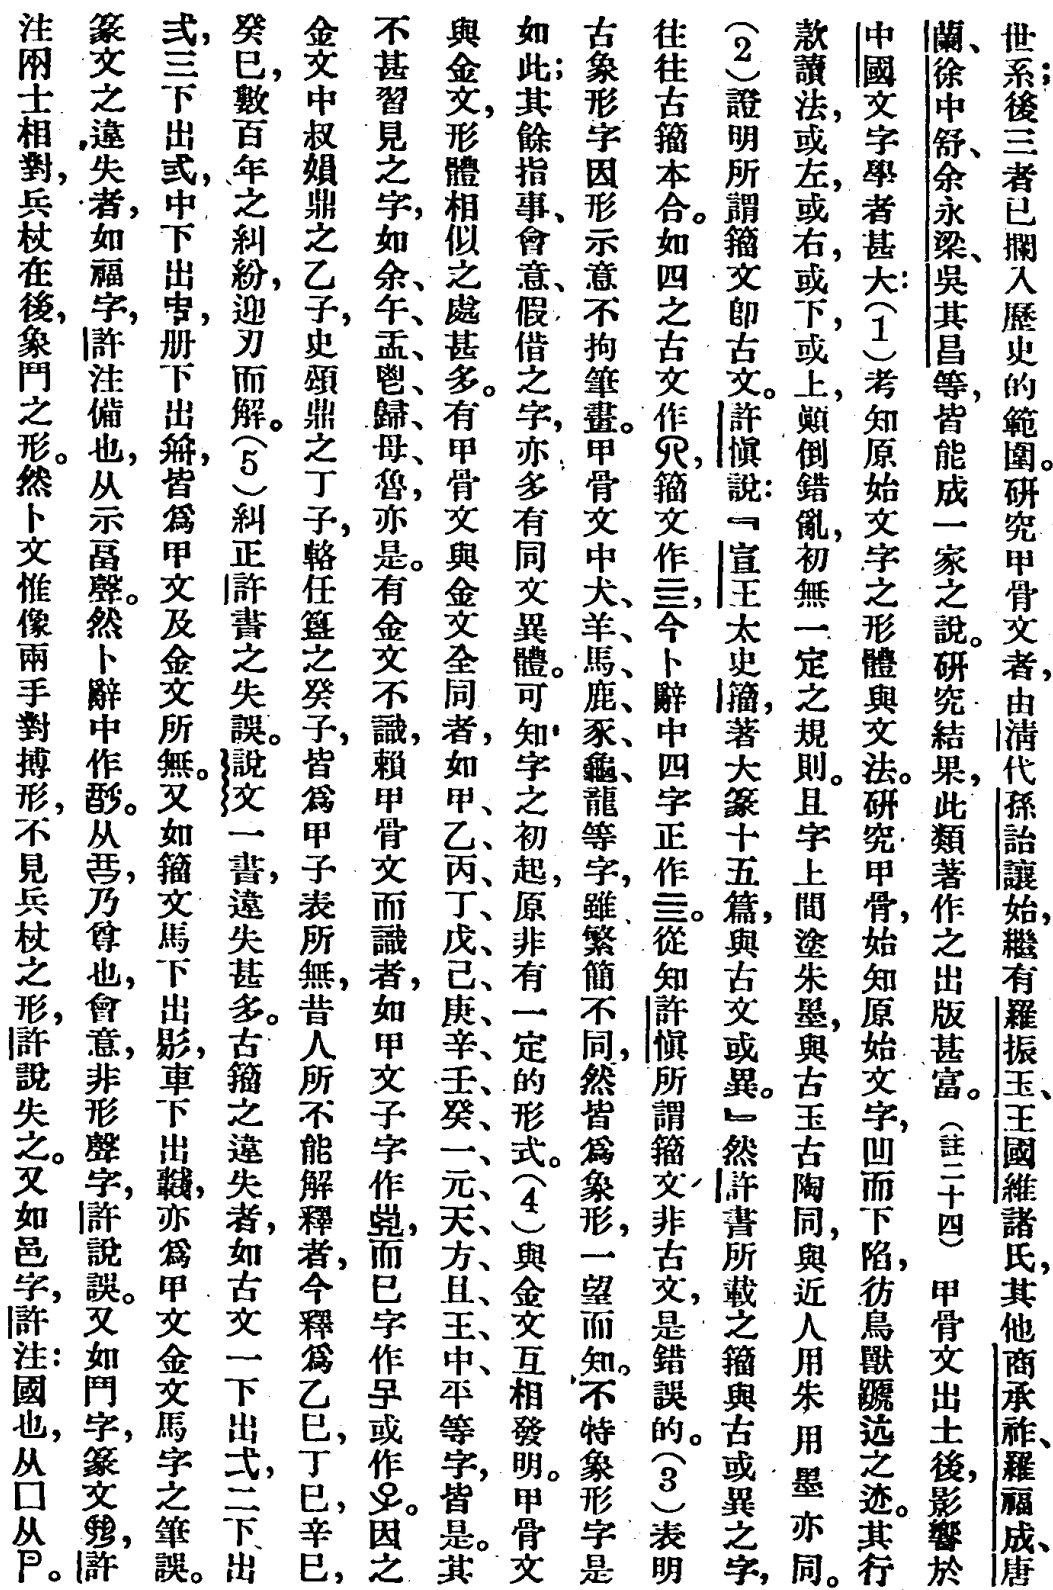 世系;後三者已攔入歷史的範圍。研究甲骨文者,由清代孫詒讓始,繼有羅振玉、王國維諸氏,其他商承祚、羅福成、唐
蘭、徐中舒、余永梁、吳其昌等,皆能成一家之說。研究結果,此類著作之出版甚富。(註二十四) 甲骨文出土後,影響於
中國文字學者甚大:(1)考知原始文字之形體與文法。研究甲骨,始知原始文字,凹而下陷,彷鳥獸蹏迒之迹。其行
款讀法,或左,或右,或下,或上,顛倒錯亂,初無一定之規則。且字上間塗朱墨,與古玉古陶同,與近人用朱用墨亦同。
(2)證明所謂籀文卽古文。許慎說:『宣王太史籀,著大篆十五篇,與古文或異。』然許書所載之籀與古或異之字,
往往古籀本合。如四之古文作,籀文作亖,今卜辭中四字正作亖。從知許慎所謂籀文非古文,是錯誤的。(3)表明
古象形字因形示意不拘筆畫。甲骨文中犬、羊、馬、鹿、豕、龜、龍等字,雖繁簡不同,然皆爲象形,一望而知。不特象形字是
如此;其餘指事、會意、假借之字,亦多有同文異體。可知字之初起,原非有一定的形式。(4)與金文互相發明。甲骨文
與金文,形體相似之處甚多。有甲骨文與金文全同者,如甲、乙、丙、丁、戊、己、庚、辛、壬、癸、一、元、天、方、且、王、中、平等字,皆是。其
不甚習見之字,如余、午、盂、鬯、歸、母、魯,亦是。有金文不識,賴甲骨文而識者,如甲文子字作,而巳字作或作。因之
金文中叔娟鼎之乙子,史頌鼎之丁子,輅任簋之癸子,皆爲甲子表所無,昔人所不能解釋者,今釋爲乙巳,丁巳,辛巳,
癸巳,數百年之糾紛,迎刃而解。(5)糾正許書之失誤。說文一書,違失甚多。古籀之違失者,如古文一下出弌,二下出
弍,三下出弎,中下出,册下出,皆爲甲文及金文所無。又如籀文馬下出,車下出,亦爲甲文金文馬字之筆誤。
篆文之違失者,如福字,許注備也,从示畐聲。然卜辭中作。从,乃尊也,會意,非形聲字,許說誤。又如鬥字,篆文,許
注兩士相對,兵杖在後,象鬥之形。然卜文惟像兩手對搏形,不見兵杖之形,許說失之。又如邑字,許注:國也,从囗从卪。